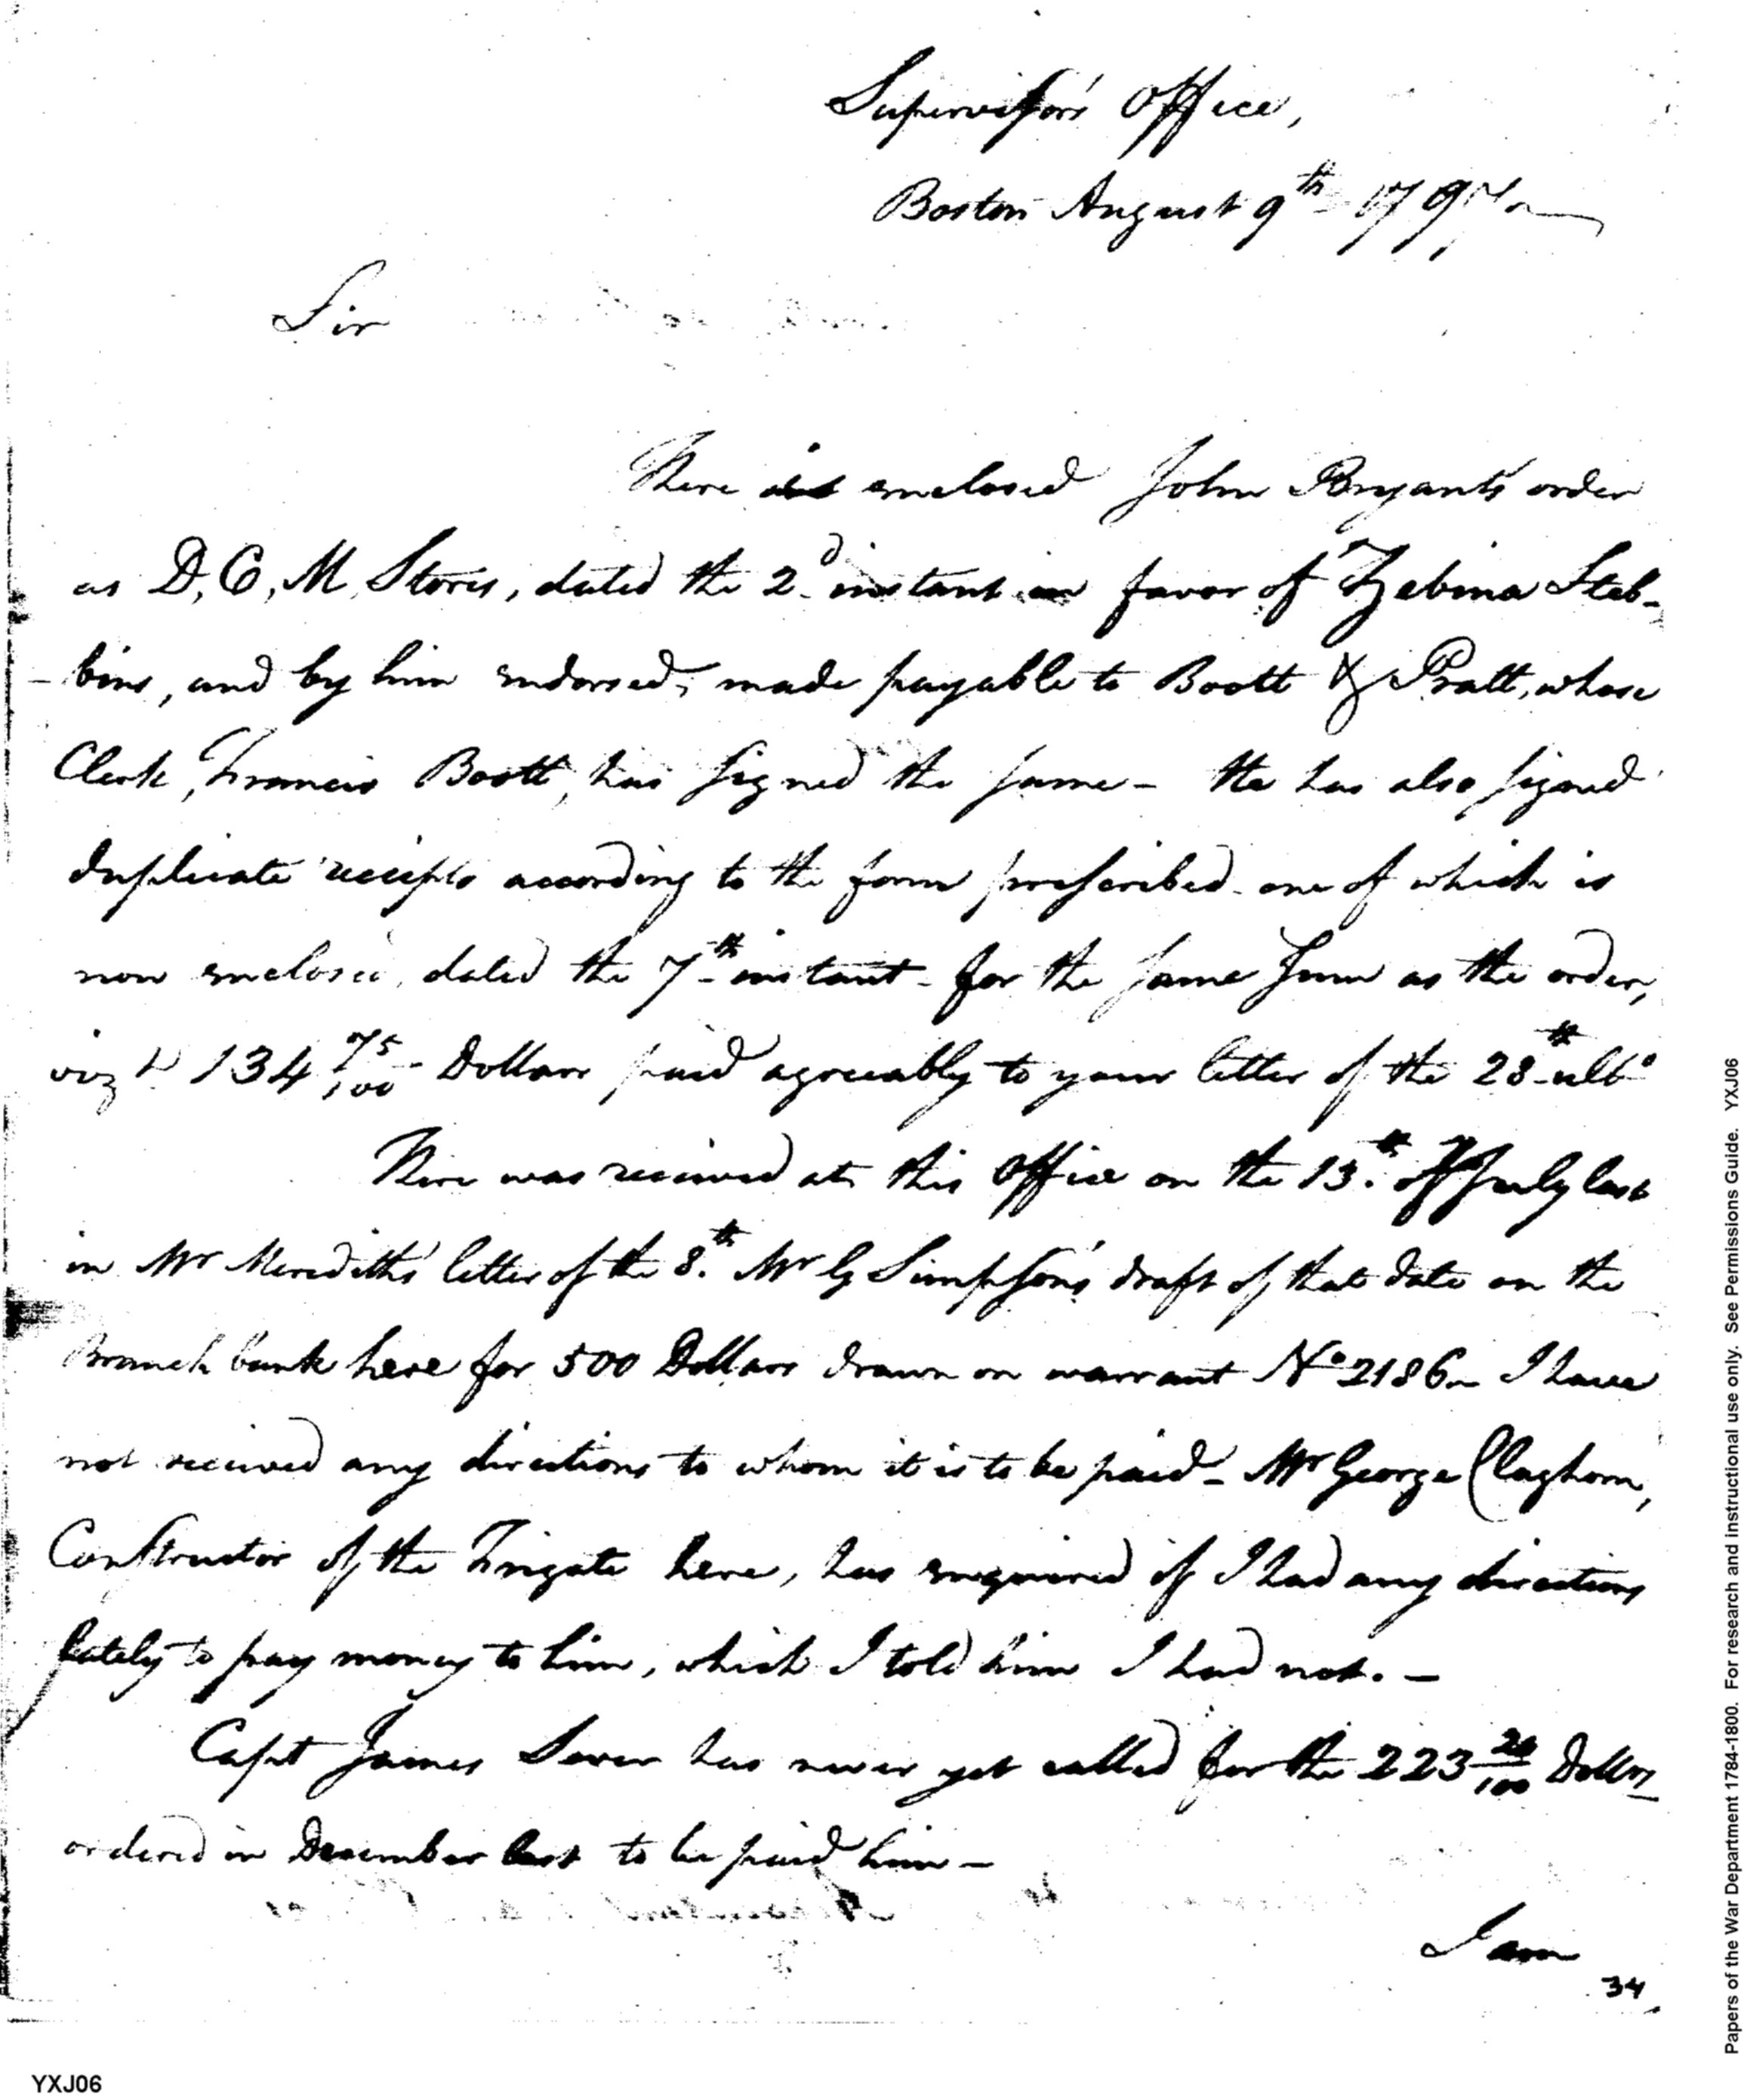 Supervisor's Office,
Boston August 9th 1797
Sir
There is enclosed John Bryant's order
as D. C. M. Stores, dated the 2d instant in favor of Zebina Steb-
-bins, and by him endorsed, made payable to Boott & Pratt, whose
Clerk, Francis Boott, has signed the same - He has also signed
duplicate receipts according to the form prescribed - one of which is
now enclosed, dated the 7th instant - for the same sum as the order,
vizt 134 75/100 Dollars paid agreeably to your letter of the 28th ulto
There was received at this Office on the 13th of July last
in Mr Meredith's letter of the 8th Mr G Simpson's draft of that date on the
Branch bank here for 500 Dollars drawn on warrant No 2186 - I have
not received any directions to whom it is to be paid - Mr George Claghorn,
Constructor of the Frigate here, has enquired if I had any directions
lately to pay money to him, which I told him I had not. -
Capt James Sever has never yet called for the 223 20/100 Dollars
ordered in December last to be paid him -
I am
34
YXJ06
Papers of the War Department 1784-1800. For research and instructional use only. See Permissions Guide. YXJ06